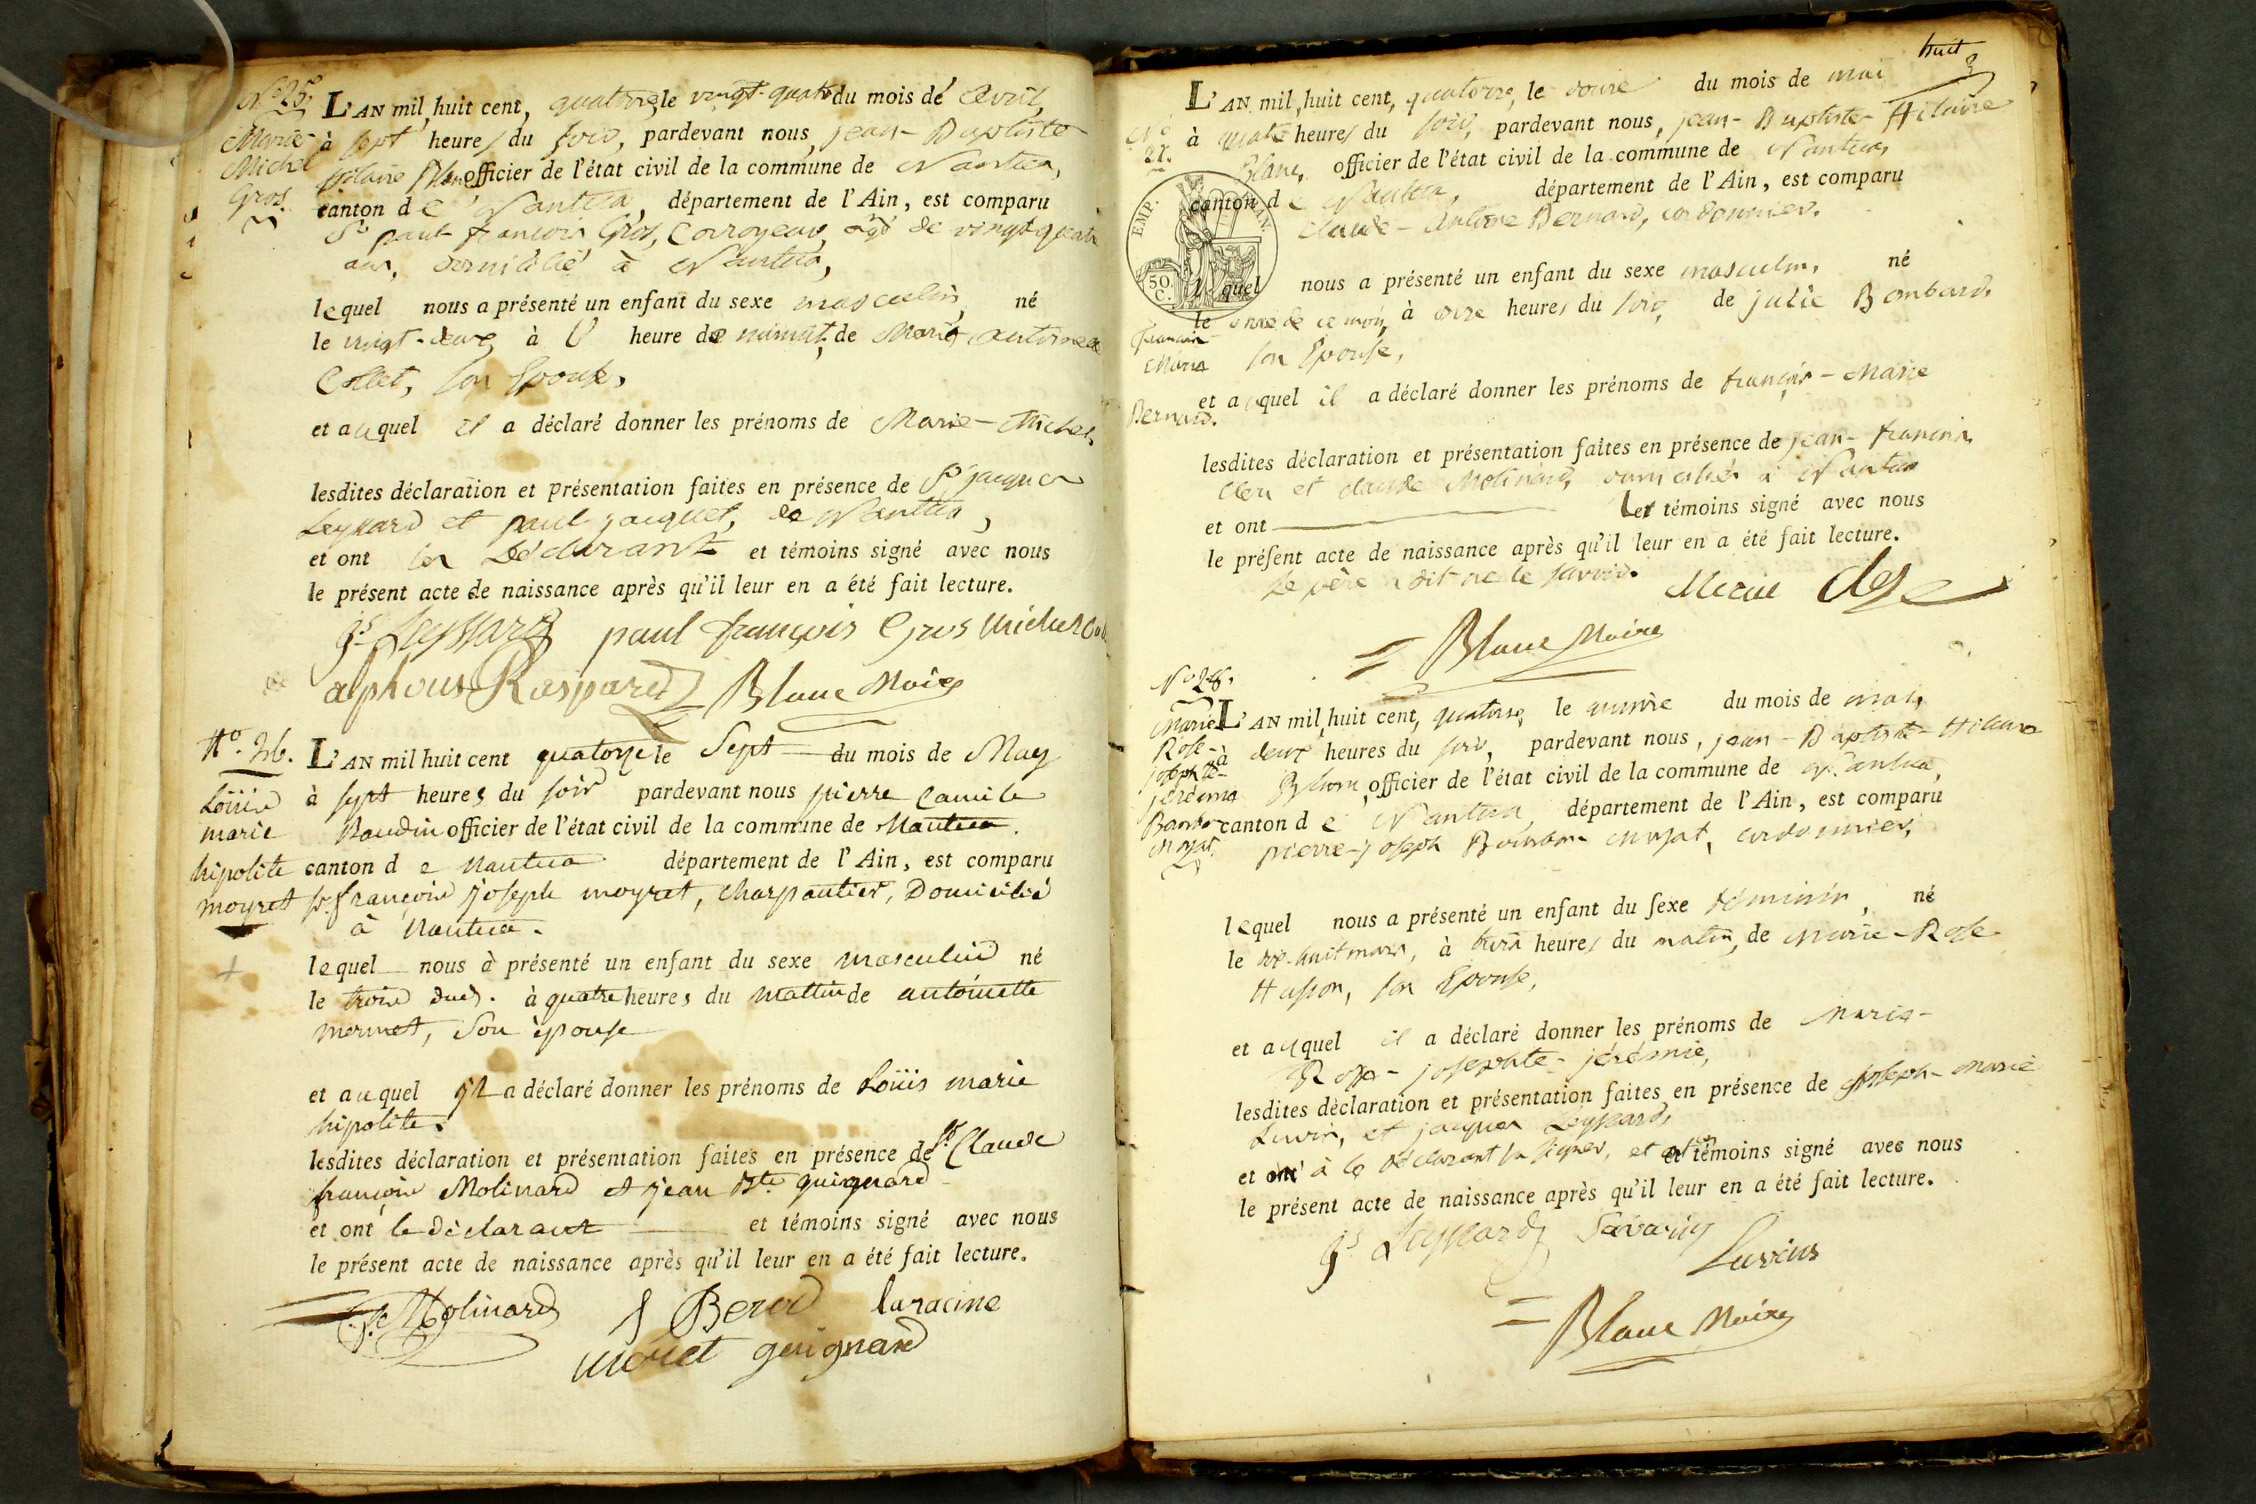 N.º 25.
Marie
Michel
Gros.
L'AN mil huit cent, quatorze, le vingt-quatre du mois de avril,
à sept heures du soir, pardevant nous, jean-Baptiste
hilaire Blanc officier de l'état civil de la commune de Nantua,
canton de Nantua, département de l'Ain, est comparu
Sr paul françois Gros, Corroyeur, agé de vingt-quatre
ans, domicilié à Nantua,
lequel nous a présenté un enfant du sexe masculin, né
le vingt-deux, à heure de minuit, de Marie antoinette
Collet, son Epouse,
et auquel il a déclaré donner les prénoms de Marie-Michel,
lesdites déclaration et présentation faites en présence de Sr jacques
Leyssard et paul jacquet, de Nantua,
et ont les Déclarant et témoins signé avec nous
le présent acte de naissance après qu'il leur en a été fait lecture.
js Leyssard paul françois Gros
Blanc Maire
Nº. 26.
Loüis
marie
hipolite
moyret
L'AN mil huit cent quatorze le Sept du mois de May
à sept heures du soir pardevant nous pierre Camile
Baudin officier de l'état civil de la commune de Nantua.
canton de Nantua département de l'Ain, est comparu
sr. françois joseph moyret, Charpantier, Domicilié
à Nantua.
lequel nous a présenté un enfant du sexe masculin né
le trois dud. à quatre heures du mattin de antoinette
mermet, Son épouse
et auquel yl a déclaré donner les prénoms de Loüis marie
hipolite.
lesdites déclaration et présentation faites en présence de sr. Claude
françois Molinard et jean Bte. guignard
et ont le déclarant et témoins signé avec nous
le présent acte de naissance après qu'il leur en a été fait lecture.
Molinard Berod laracine
guignard
huit
8
Nº
27.
françois
Marie
Bernard.
L'AN mil huit cent, quatorze, le douze du mois de mai
à quatre heures du soir, pardevant nous, jean-Baptiste-Hilaire
Blanc, officier de l'état civil de la commune de Nantua,
canton de Nantua, département de l'Ain, est comparu
Claude-Antoine Bernard, cordonnier.
EMP. 50 C.
lequel nous a présenté un enfant du sexe masculin, né
le onze de ce mois, à onze heures du soir, de julie Bombard,
son Epouse,
et auquel il a déclaré donner les prénoms de françois-Marie
lesdites déclaration et présentation faites en présence de jean-françois
Clerc et claude Molinard, domiciliés à Nantua
et ont Les témoins signé avec nous
le présent acte de naissance après qu'il leur en a été fait lecture.
Le père a dit ne le savoir.
Blanc Maire
Nº 28.
Marie
Rose-
josephte-
jérémie
L'AN mil huit cent, quatorze, le quinze du mois de mai,
à deux heures du soir, pardevant nous, jean-Baptiste-Hilaire
Blanc officier de l'état civil de la commune de Nantua,
canton de Nantua, département de l'Ain, est comparu
pierre-joseph cordonnier,
lequel nous a présenté un enfant du sexe féminin, né
le dix-huit mars, à trois heures du matin, de Marie-Rose
Husson, son Epouse,
et auquel il a déclaré donner les prénoms de Marie-
Rose-josephte-jérémie,
lesdites déclaration et présentation faites en présence de joseph-Marie
Luvin, et jacques Leyssard,
et témoins signé avec nous
le présent acte de naissance après qu'il leur en a été fait lecture.
js Leyssard Savarin
Blanc Maire